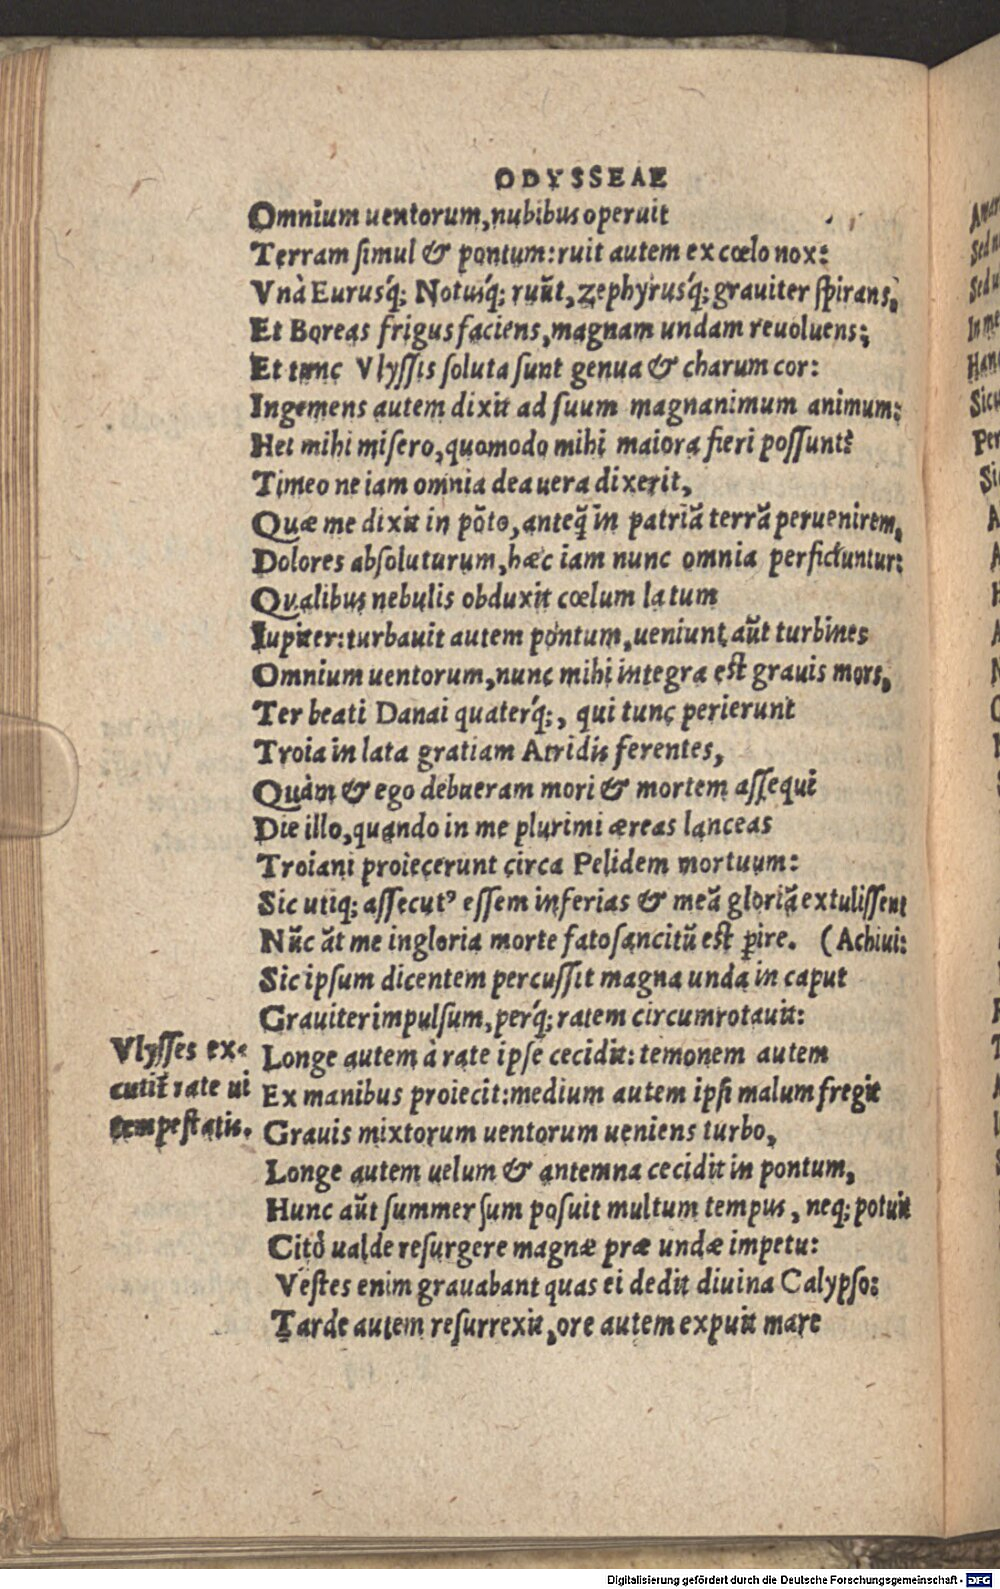 ODYSSEAE
Omnium uentorum, nubibus operuit
Terram simul & pontum: ruit autem ex cœlo nox:
Vnà Eurusq́; Notusq́; ruūt, zephyrusq́; grauiter spirans,
Et Boreas frigus faciens, magnam undam reuoluens;
Et tunc Vlyssis soluta sunt genua & charum cor:
Ingemens autem dixit ad suum magnanimum animum:
Hei mihi misero, quomodo mihi maiora fieri possunt?
Timeo ne iam omnia dea uera dixerit,
Quæ me dixit in pōto, anteq̄ in patriā terrā peruenirem,
Dolores absoluturum, hæc iam nunc omnia perficiuntur:
Qualibus nebulis obduxit cœlum latum
Iupiter: turbauit autem pontum, ueniunt aūt turbines
Omnium uentorum, nunc mihi integra est grauis mors,
Ter beati Danai quaterq́;, qui tunc perierunt
Troia in lata gratiam Atridis ferentes,
Quàm & ego debueram mori & mortem assequi
Die illo, quando in me plurimi æreas lanceas
Troiani proiecerunt circa Pelidem mortuum:
Sic utiq; assecutꝰ essem inferias & meā gloriā extulissent
Nūc āt me ingloria morte fato sancitū est ꝑire. (Achiui:
Sic ipsum dicentem percussit magna unda in caput
Grauiter impulsum, perq́; ratem circumrotauit:
Vlysses ex-
cutit̄ rate ui
tempestatis.
Longe autem à rate ipse cecidit: temonem autem
Ex manibus proiecit: medium autem ipsi malum fregit
Grauis mixtorum uentorum ueniens turbo,
Longe autem uelum & antemna cecidit in pontum,
Hunc aūt summersum posuit multum tempus, neq; potuit
Citò ualde resurgere magnæ præ undæ impetu:
Vestes enim grauabant quas ei dedit diuina Calypso:
Tarde autem resurrexit, ore autem expuit mare
Digitalisierung gefördert durch die Deutsche Forschungsgemeinschaft - DFG